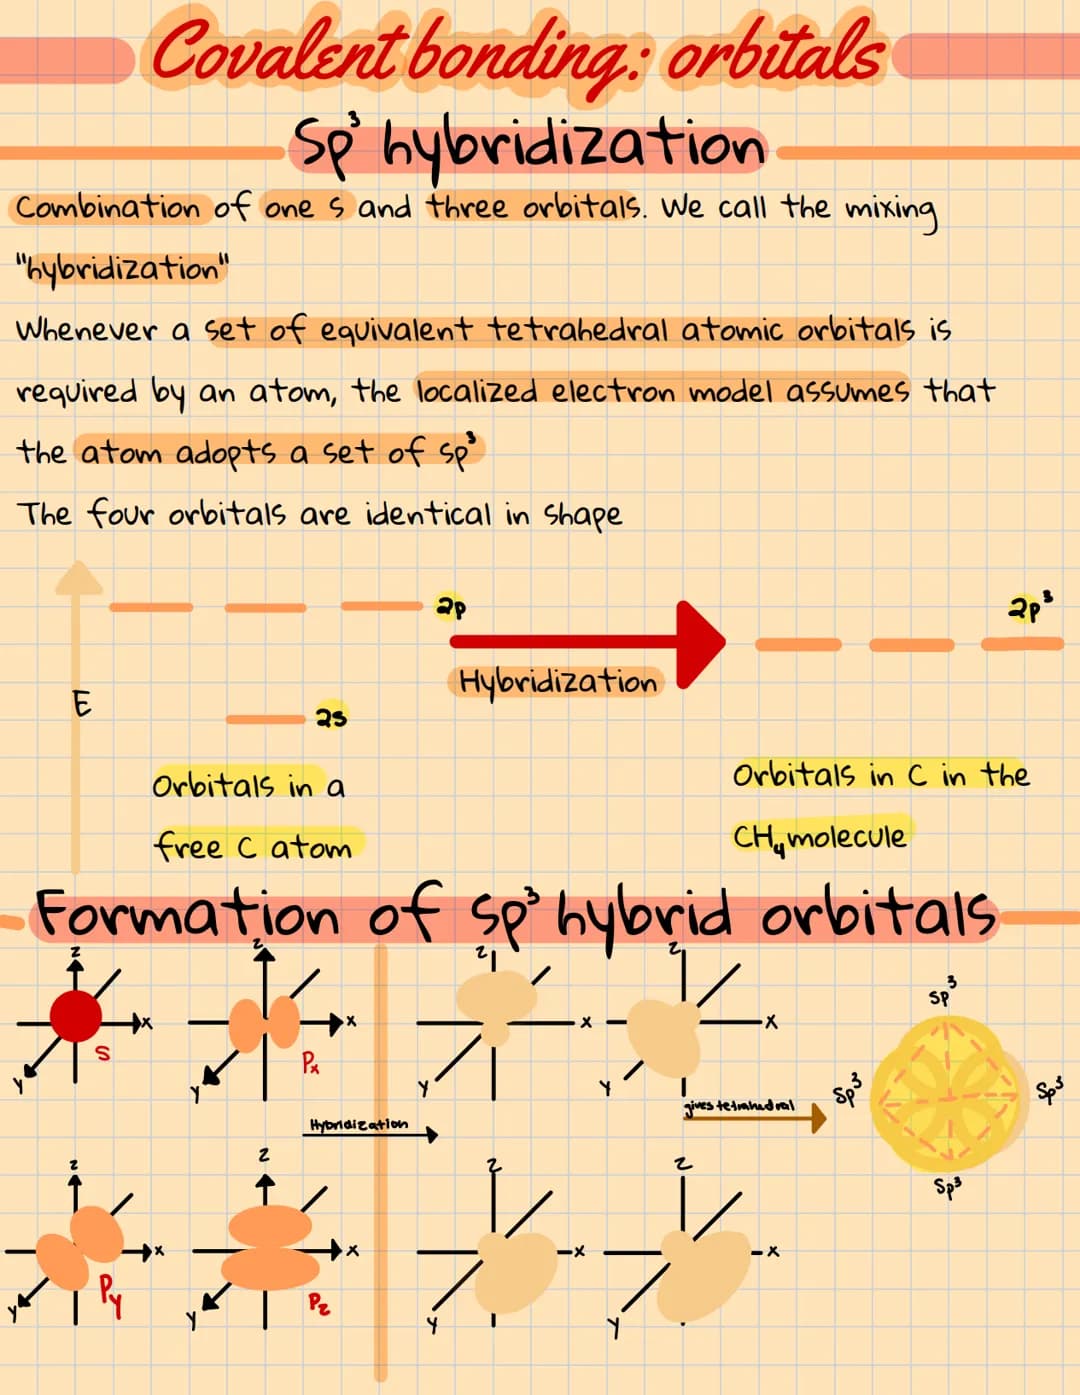 Covalent bonding: orbitals
Sp³ hybridization
Combination of one s and three orbitals. We call the mixing
"hybridization"
Whenever a set of equivalent tetrahedral atomic orbitals is
required by an atom, the localized electron model assumes that
the atom adopts a set of sp³
The four orbitals are identical in shape
2p
2p³
Hybridization
E
2s
Orbitals in a
free C atom
Orbitals in C in the
CH₄ molecule
Formation of sp³ hybrid orbitals
z
x
y
s
z
x
y
Px
z
x
y
z
x
y
sp³
sp³
sp³
sp³
gives tetrahedral
Hybridization
z
x
y
Py
z
x
y
Pz
z
x
y
z
x
y